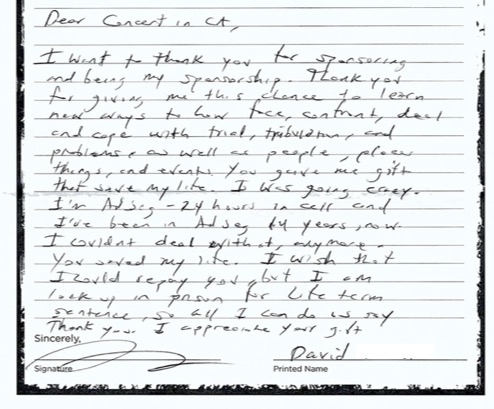 Dear Concert in CA,
I want to thank you for sponsoring
and being my sponsorship. Thank you
for giving me this chance to learn
new ways to how face, confront, deal
and cope with trial, tribulation, and
problems, as well as people, places
things, and events. You gave me gift
that save my life. I was going crazy.
I'm AdSeg - 24 hours in cell and
I've been in AdSeg 14 years, now.
I couldnt deal with it, anymore.
You saved my life. I wish that
I could repay you, but I am
lock up in prison for Life term
sentence, so all I can do is say
Thank you. I appreciate your gift
Sincerely,
David
Signature Printed Name